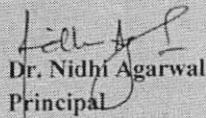 Dr. Nidhi Agarwal
Principal